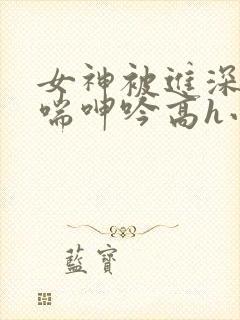 女神被进深
喘呻吟高h小
藍寶